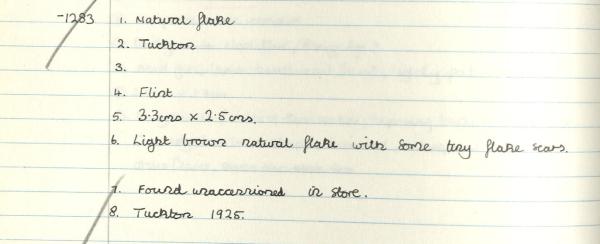 -1283 1. Natural flake
2. Tuckton
3.
4. Flint
5. 3.3cms x 2.5cms.
6. Light brown natural flake with some tiny flake scars.
7. Found unaccessioned in store.
8. Tuckton 1925.